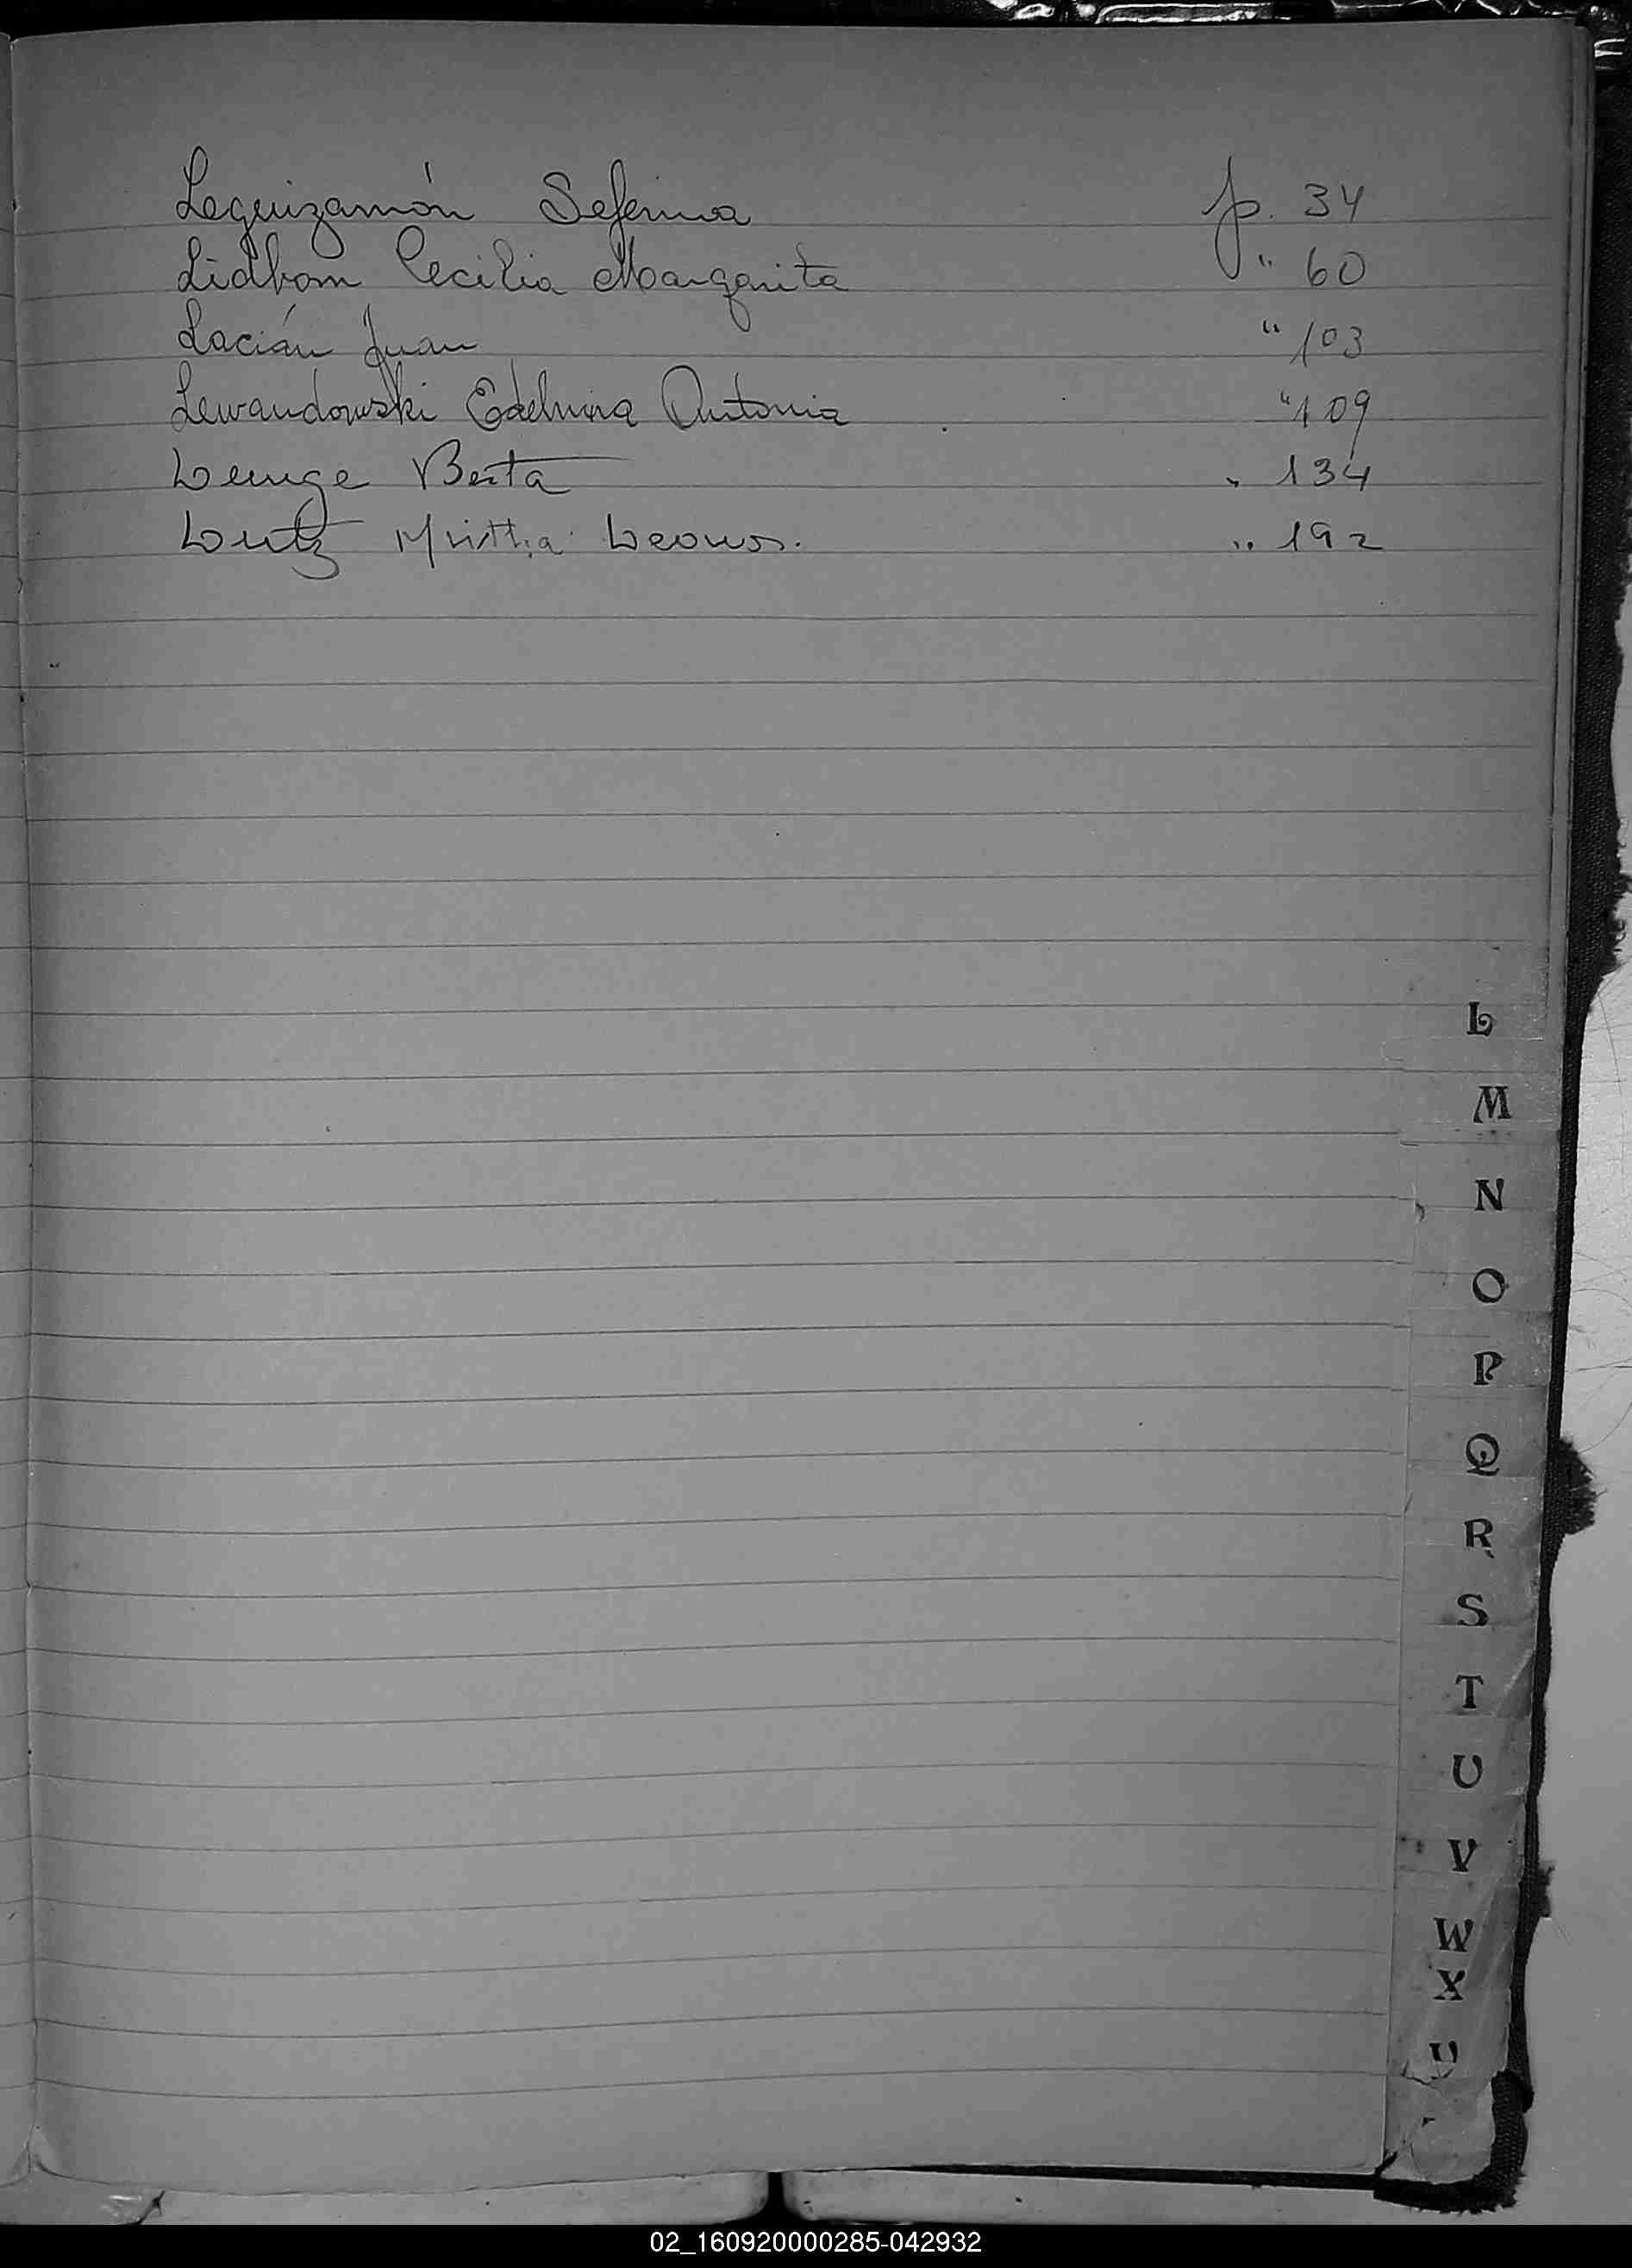 Leguizamón Seferina p. 34
Lidbom Cecilia Margarita " 60
Lacián Juan " 103
Lewandowski Edelmira Antonia " 109
Lenuge Berta " 134
Lutz Mirtha Leonor. " 192
L
M
N
O
P
Q
R
S
T
U
V
W
X
02_160920000285-042932